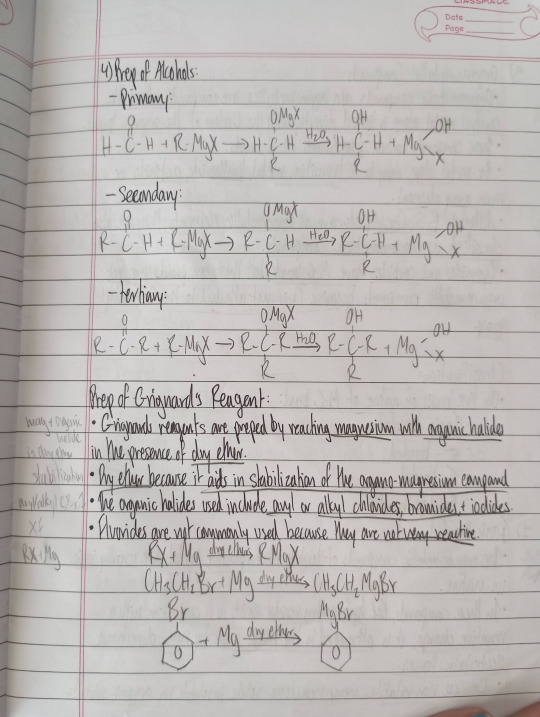 CLASSMATE
Date
Page
4) Prep of Alcohols:
- Primary:
O OMgX OH
H-C-H + R-MgX → H-C-H H₂O→ H-C-H + Mg OH
R R X
- Secondary:
O OMgX OH
R-C-H + R-MgX → R-C-H H₂O→ R-C-H + Mg OH
R R X
- tertiary:
O OMgX OH
R-C-R + R-MgX → R-C-R H₂O→ R-C-R + Mg OH
R R X
Prep of Grignard's Reagent:
• Grignards reagents are preped by reacting magnesium with organic halides
in the presence of dry ether.
• Dry ether because it aids in stabilization of the organo-magnesium compound
• The organic halides used include aryl or alkyl chlorides, bromides + iodides.
• Fluorides are not commonly used because they are not very reactive.
RX + Mg dry ether→ RMgX
CH₃CH₂Br + Mg dry ether→ CH₃CH₂MgBr
Br MgBr
+ Mg dry ether→
organic
halide
in dry ether
stabilization
RX + Mg